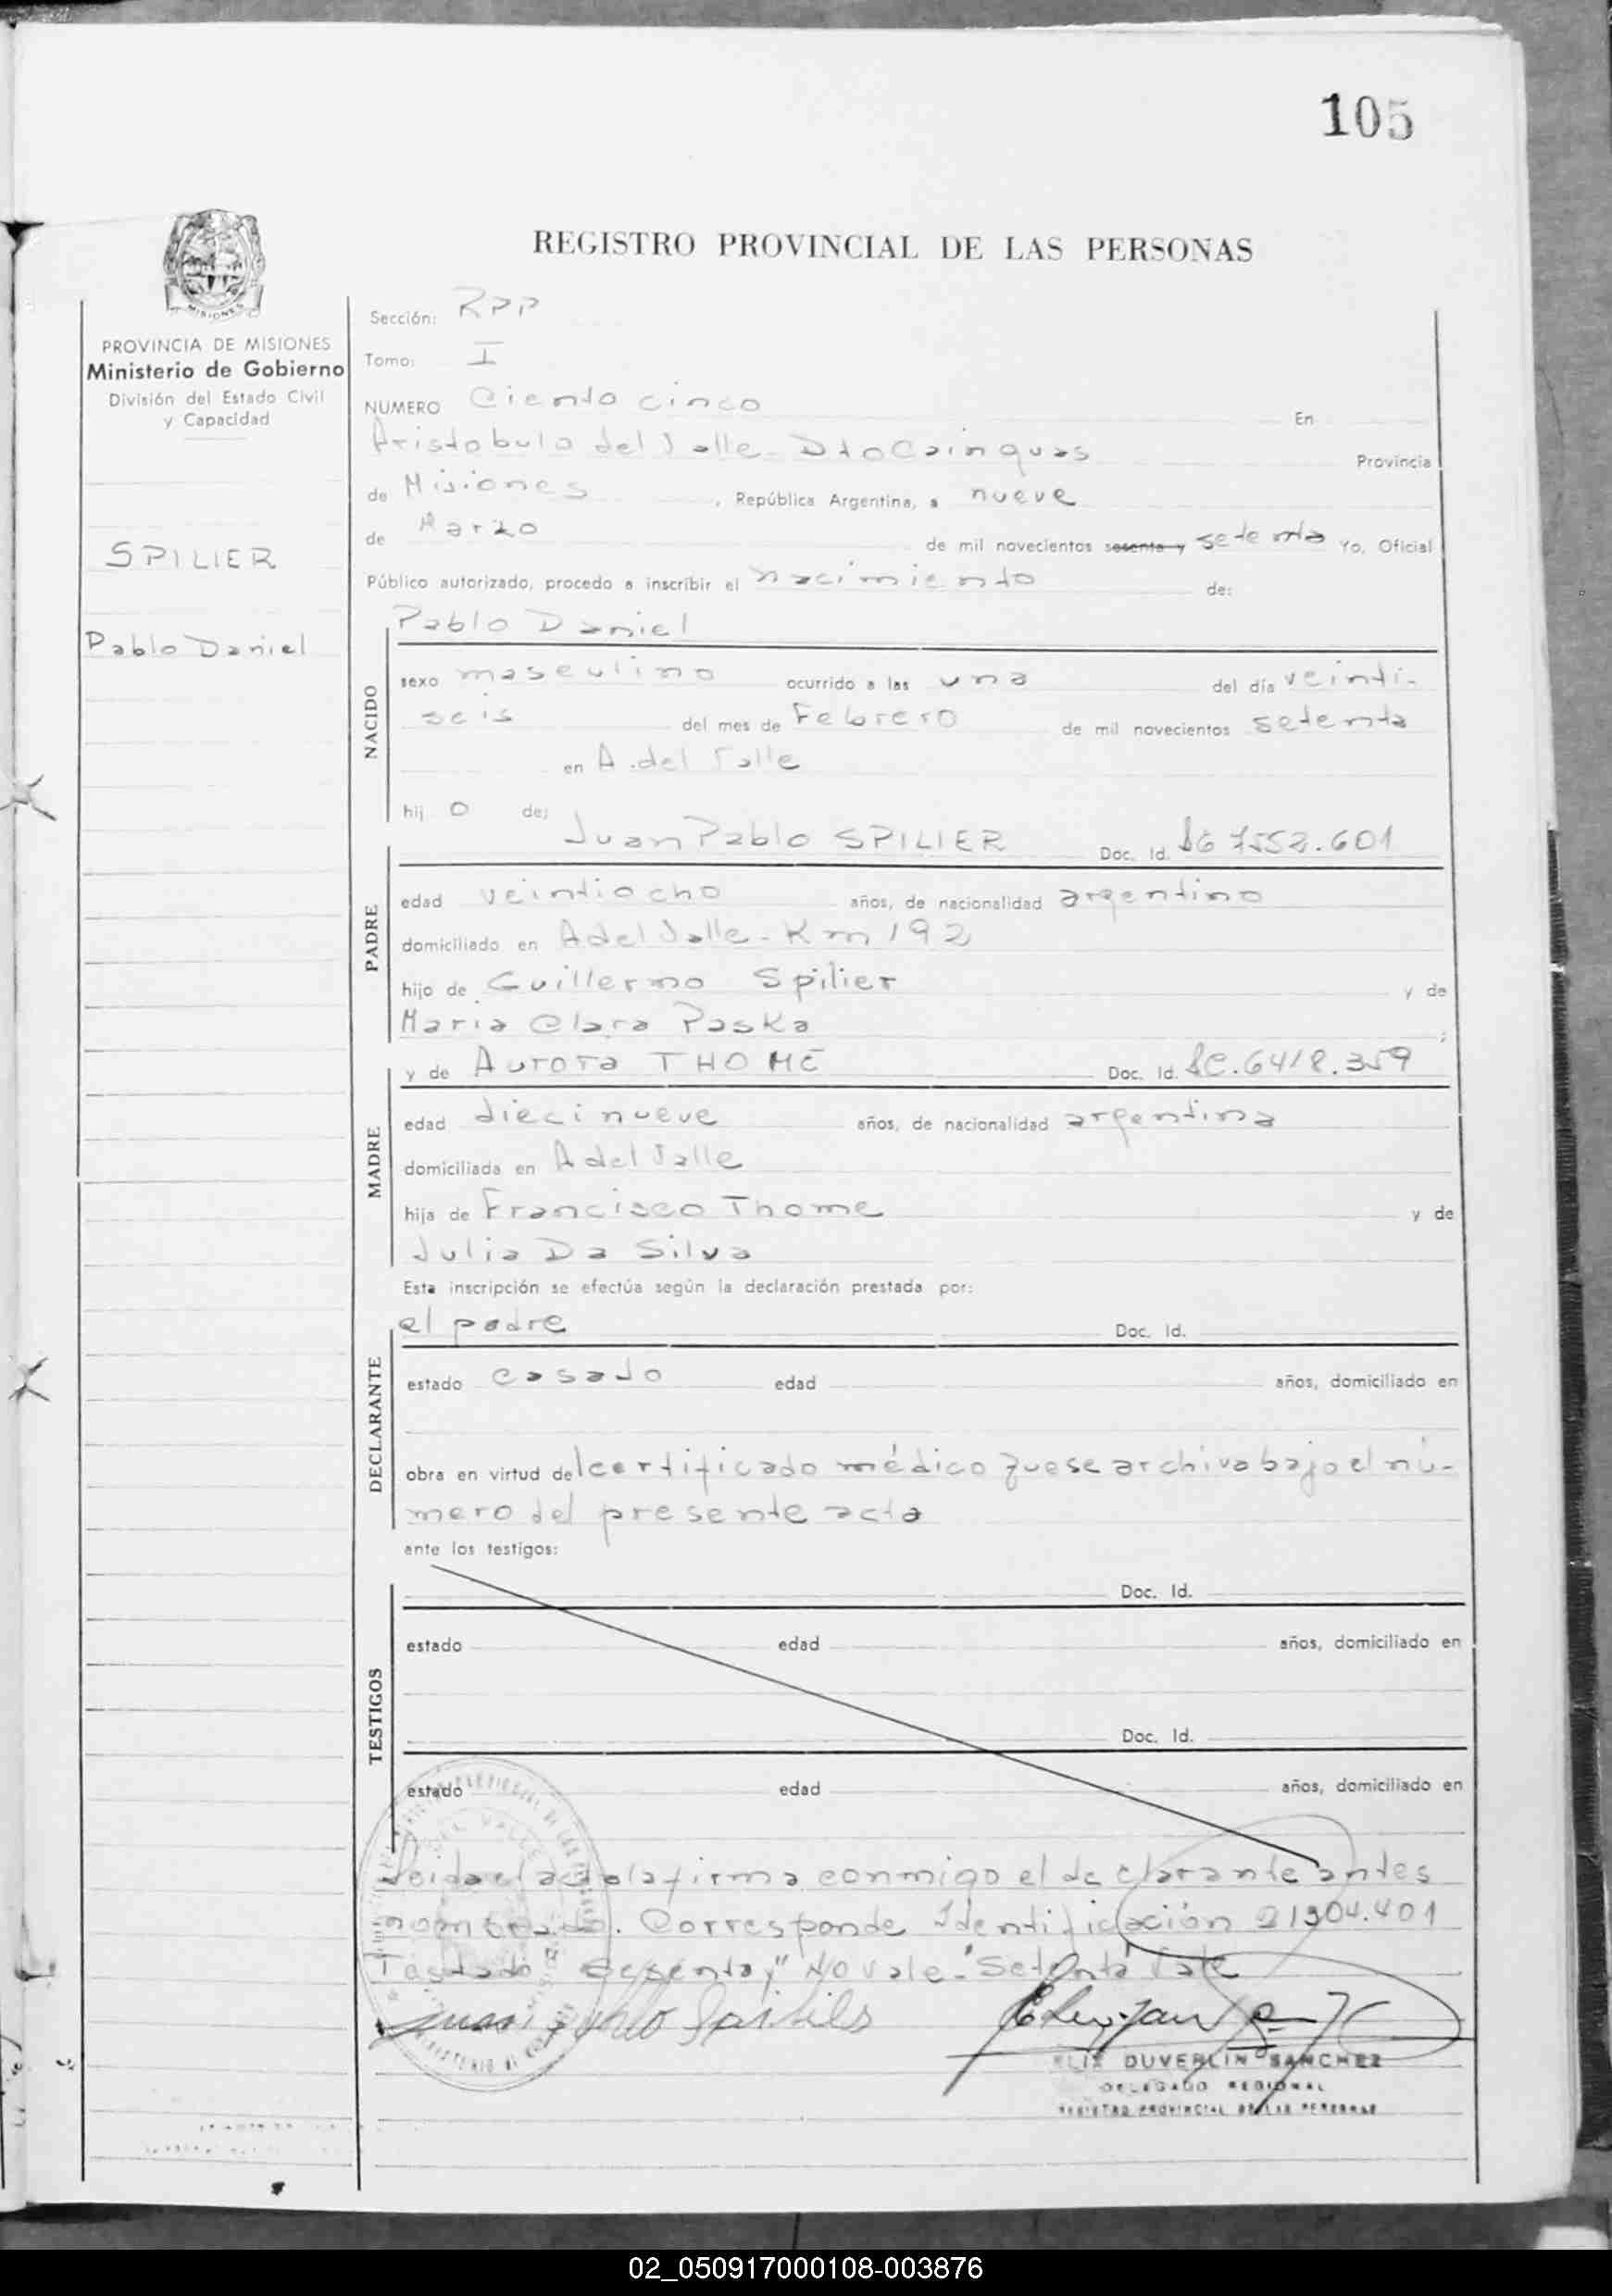 105
REGISTRO PROVINCIAL DE LAS PERSONAS
MISIONES
PROVINCIA DE MISIONES
Ministerio de Gobierno
División del Estado Civil
y Capacidad
SPILIER
Pablo Daniel
Sección: RPP
Tomo: I
NUMERO Ciento cinco En
Aristobulo del Valle - Dto Cainguas Provincia
de Misiones , República Argentina, a nueve
de Marzo de mil novecientos sesenta y setenta Yo, Oficial
Público autorizado, procedo a inscribir el nacimiento de:
NACIDO
Pablo Daniel
sexo masculino ocurrido a las una del día veinti-
seis del mes de Febrero de mil novecientos setenta
en A. del Valle
hij o de:
PADRE
Juan Pablo SPILIER Doc. Id. 7.552.601
edad veintiocho años, de nacionalidad argentino
domiciliado en A del Valle - Km 192
hijo de Guillermo Spilier y de
Maria Clara Paska ;
MADRE
y de Aurora THOME Doc. Id. 6418.359
edad diecinueve años, de nacionalidad argentina
domiciliada en A del Valle
hija de Francisco Thome y de
Julia Da Silva
Esta inscripción se efectúa según la declaración prestada por:
DECLARANTE
el padre Doc. Id.
estado casado edad años, domiciliado en
obra en virtud del certificado médico que se archiva bajo el nú-
mero del presente acta
ante los testigos:
TESTIGOS
Doc. Id.
estado edad años, domiciliado en
Doc. Id.
estado edad años, domiciliado en
Leida el acta la firma conmigo el declarante antes
nombrado. Corresponde Identificación 21904.401
Testado "sesenta y" No vale - "Setenta" Vale
DUVERLIN SANCHEZ
DELEGADO REGIONAL
REGISTRO PROVINCIAL DE LAS PERSONAS
02_050917000108-003876